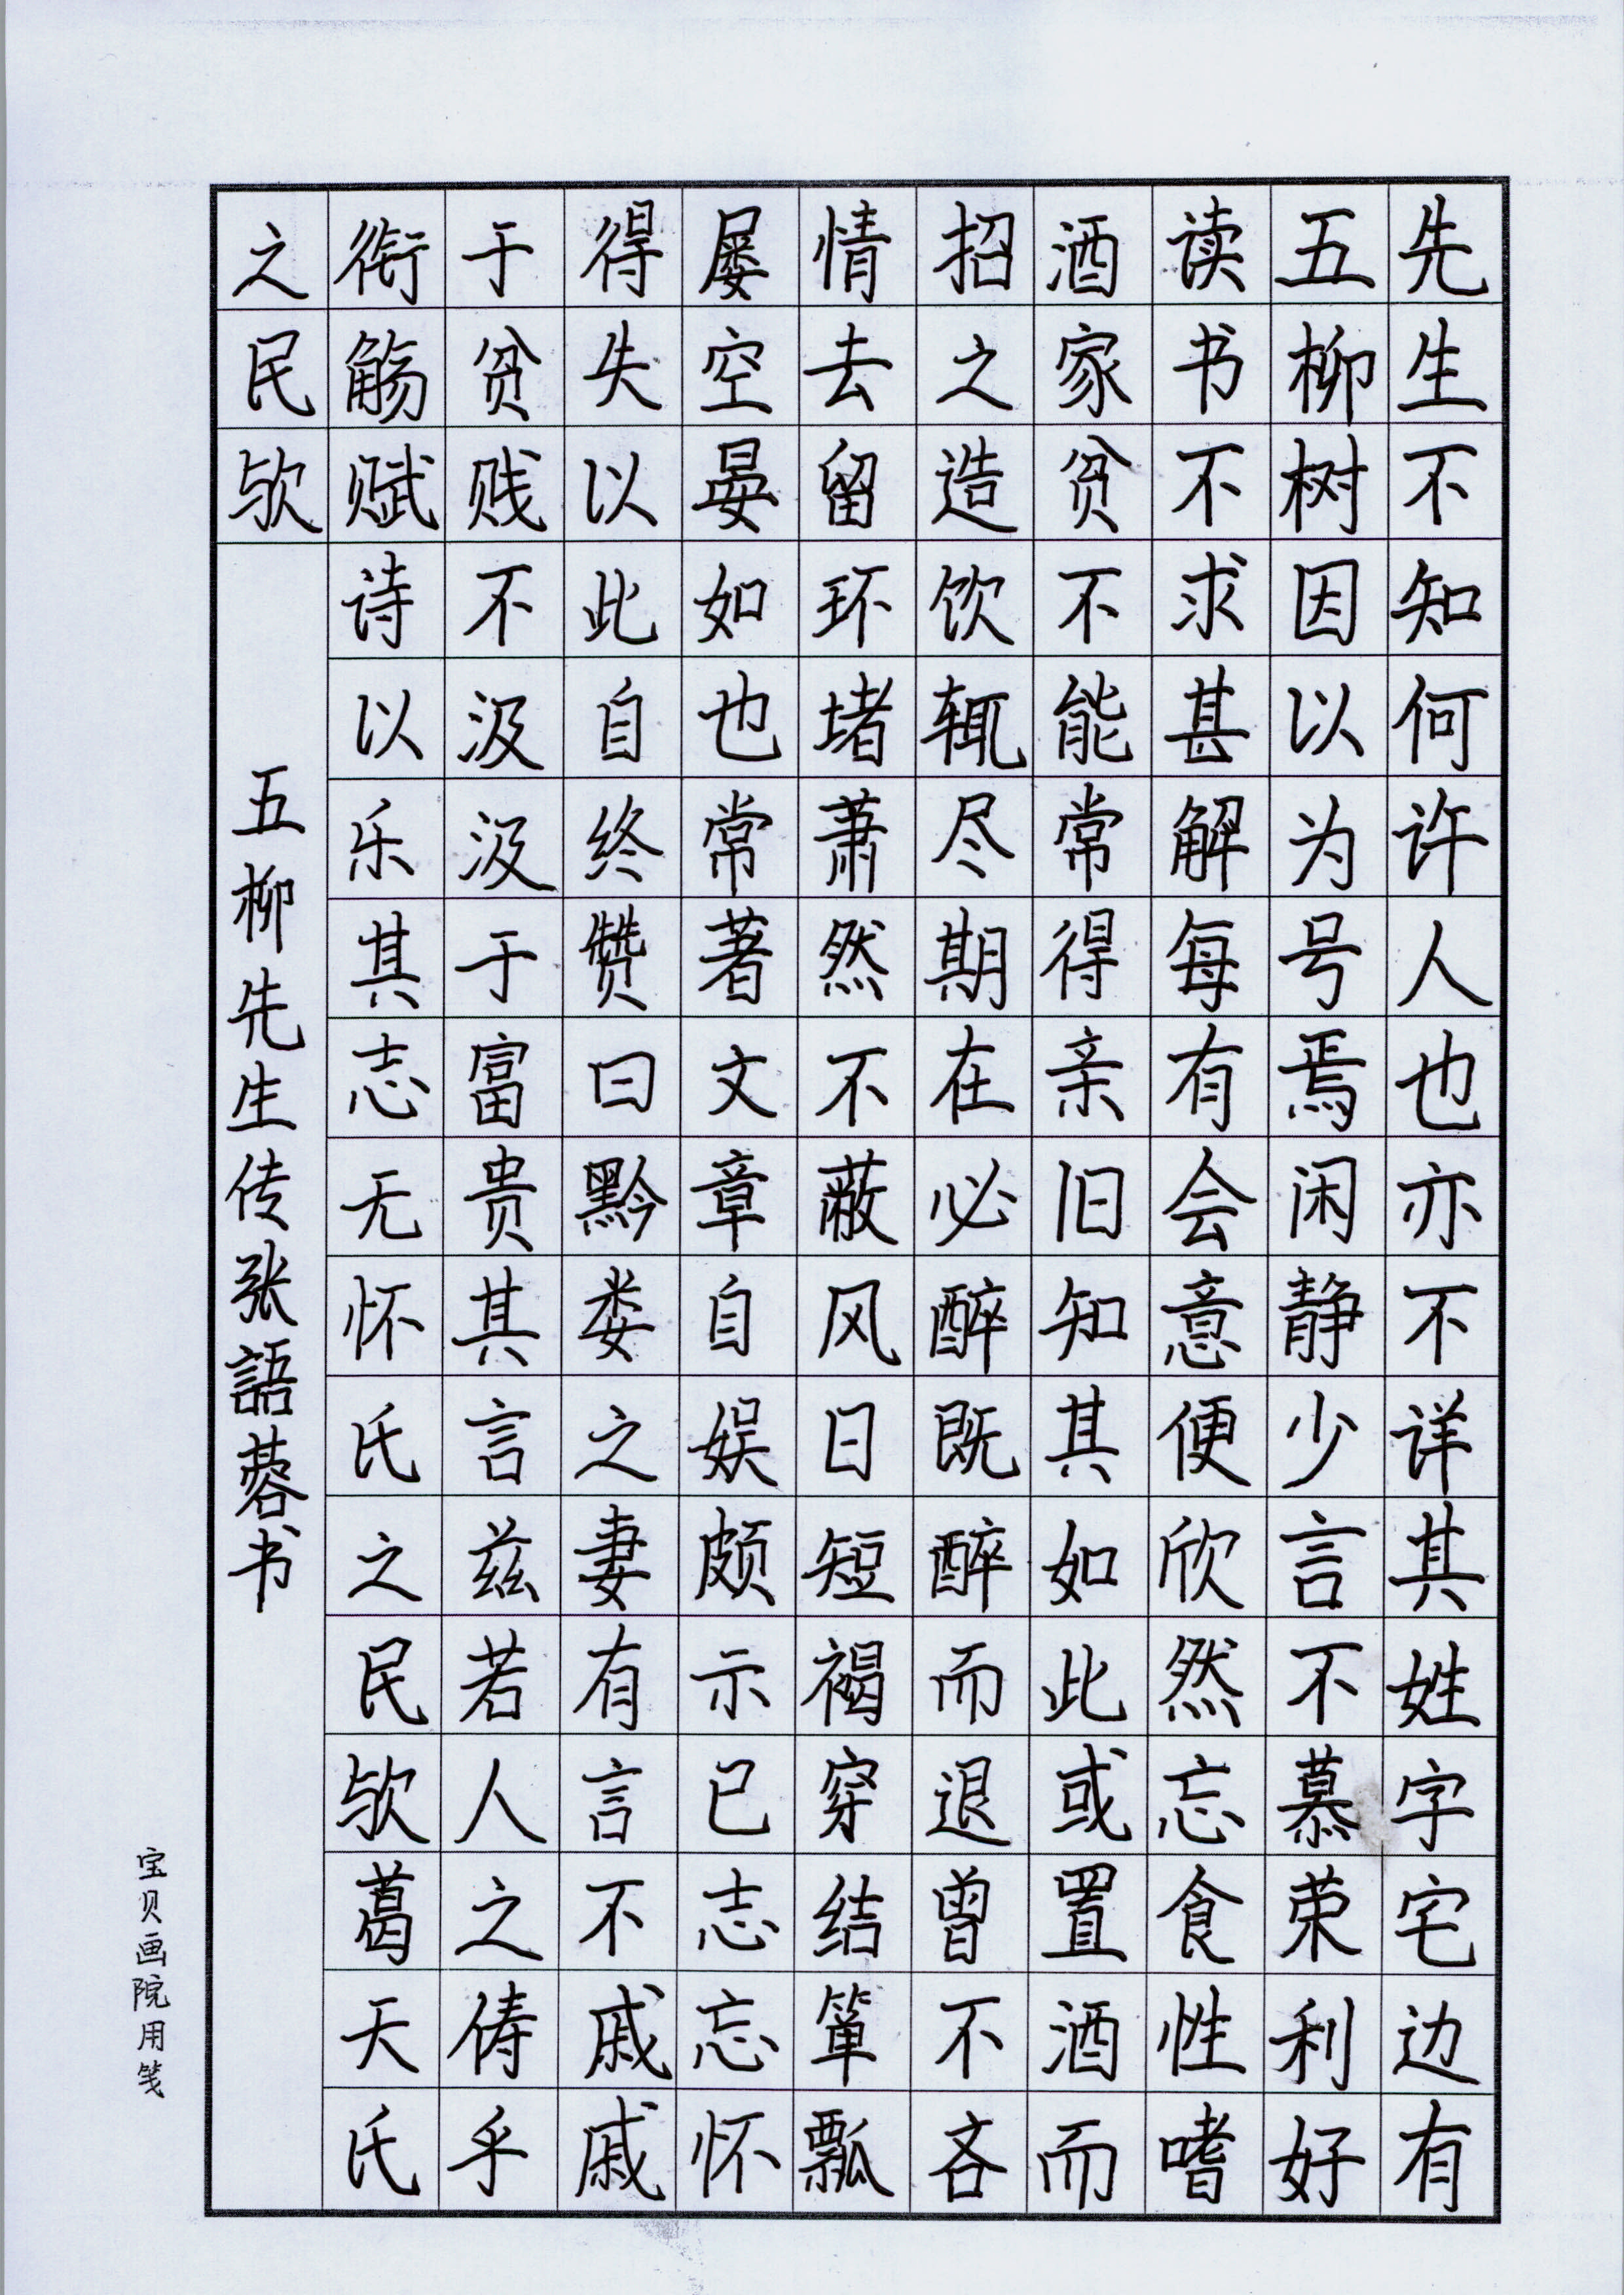 先生不知何许人也亦不详其姓字宅边有
五柳树因以为号焉闲静少言不慕荣利好
读书不求甚解每有会意便欣然忘食性嗜
酒家贫不能常得亲旧知其如此或置酒而
招之造饮辄尽期在必醉既醉而退曾不吝
情去留环堵萧然不蔽风日短褐穿结箪瓢
屡空晏如也常著文章自娱颇示己志忘怀
得失以此自终赞曰黔娄之妻有言不戚戚
于贫贱不汲汲于富贵其言兹若人之俦乎
衔觞赋诗以乐其志无怀氏之民欤葛天氏
之民欤
五柳先生传张語蓉书
宝贝画院用笺